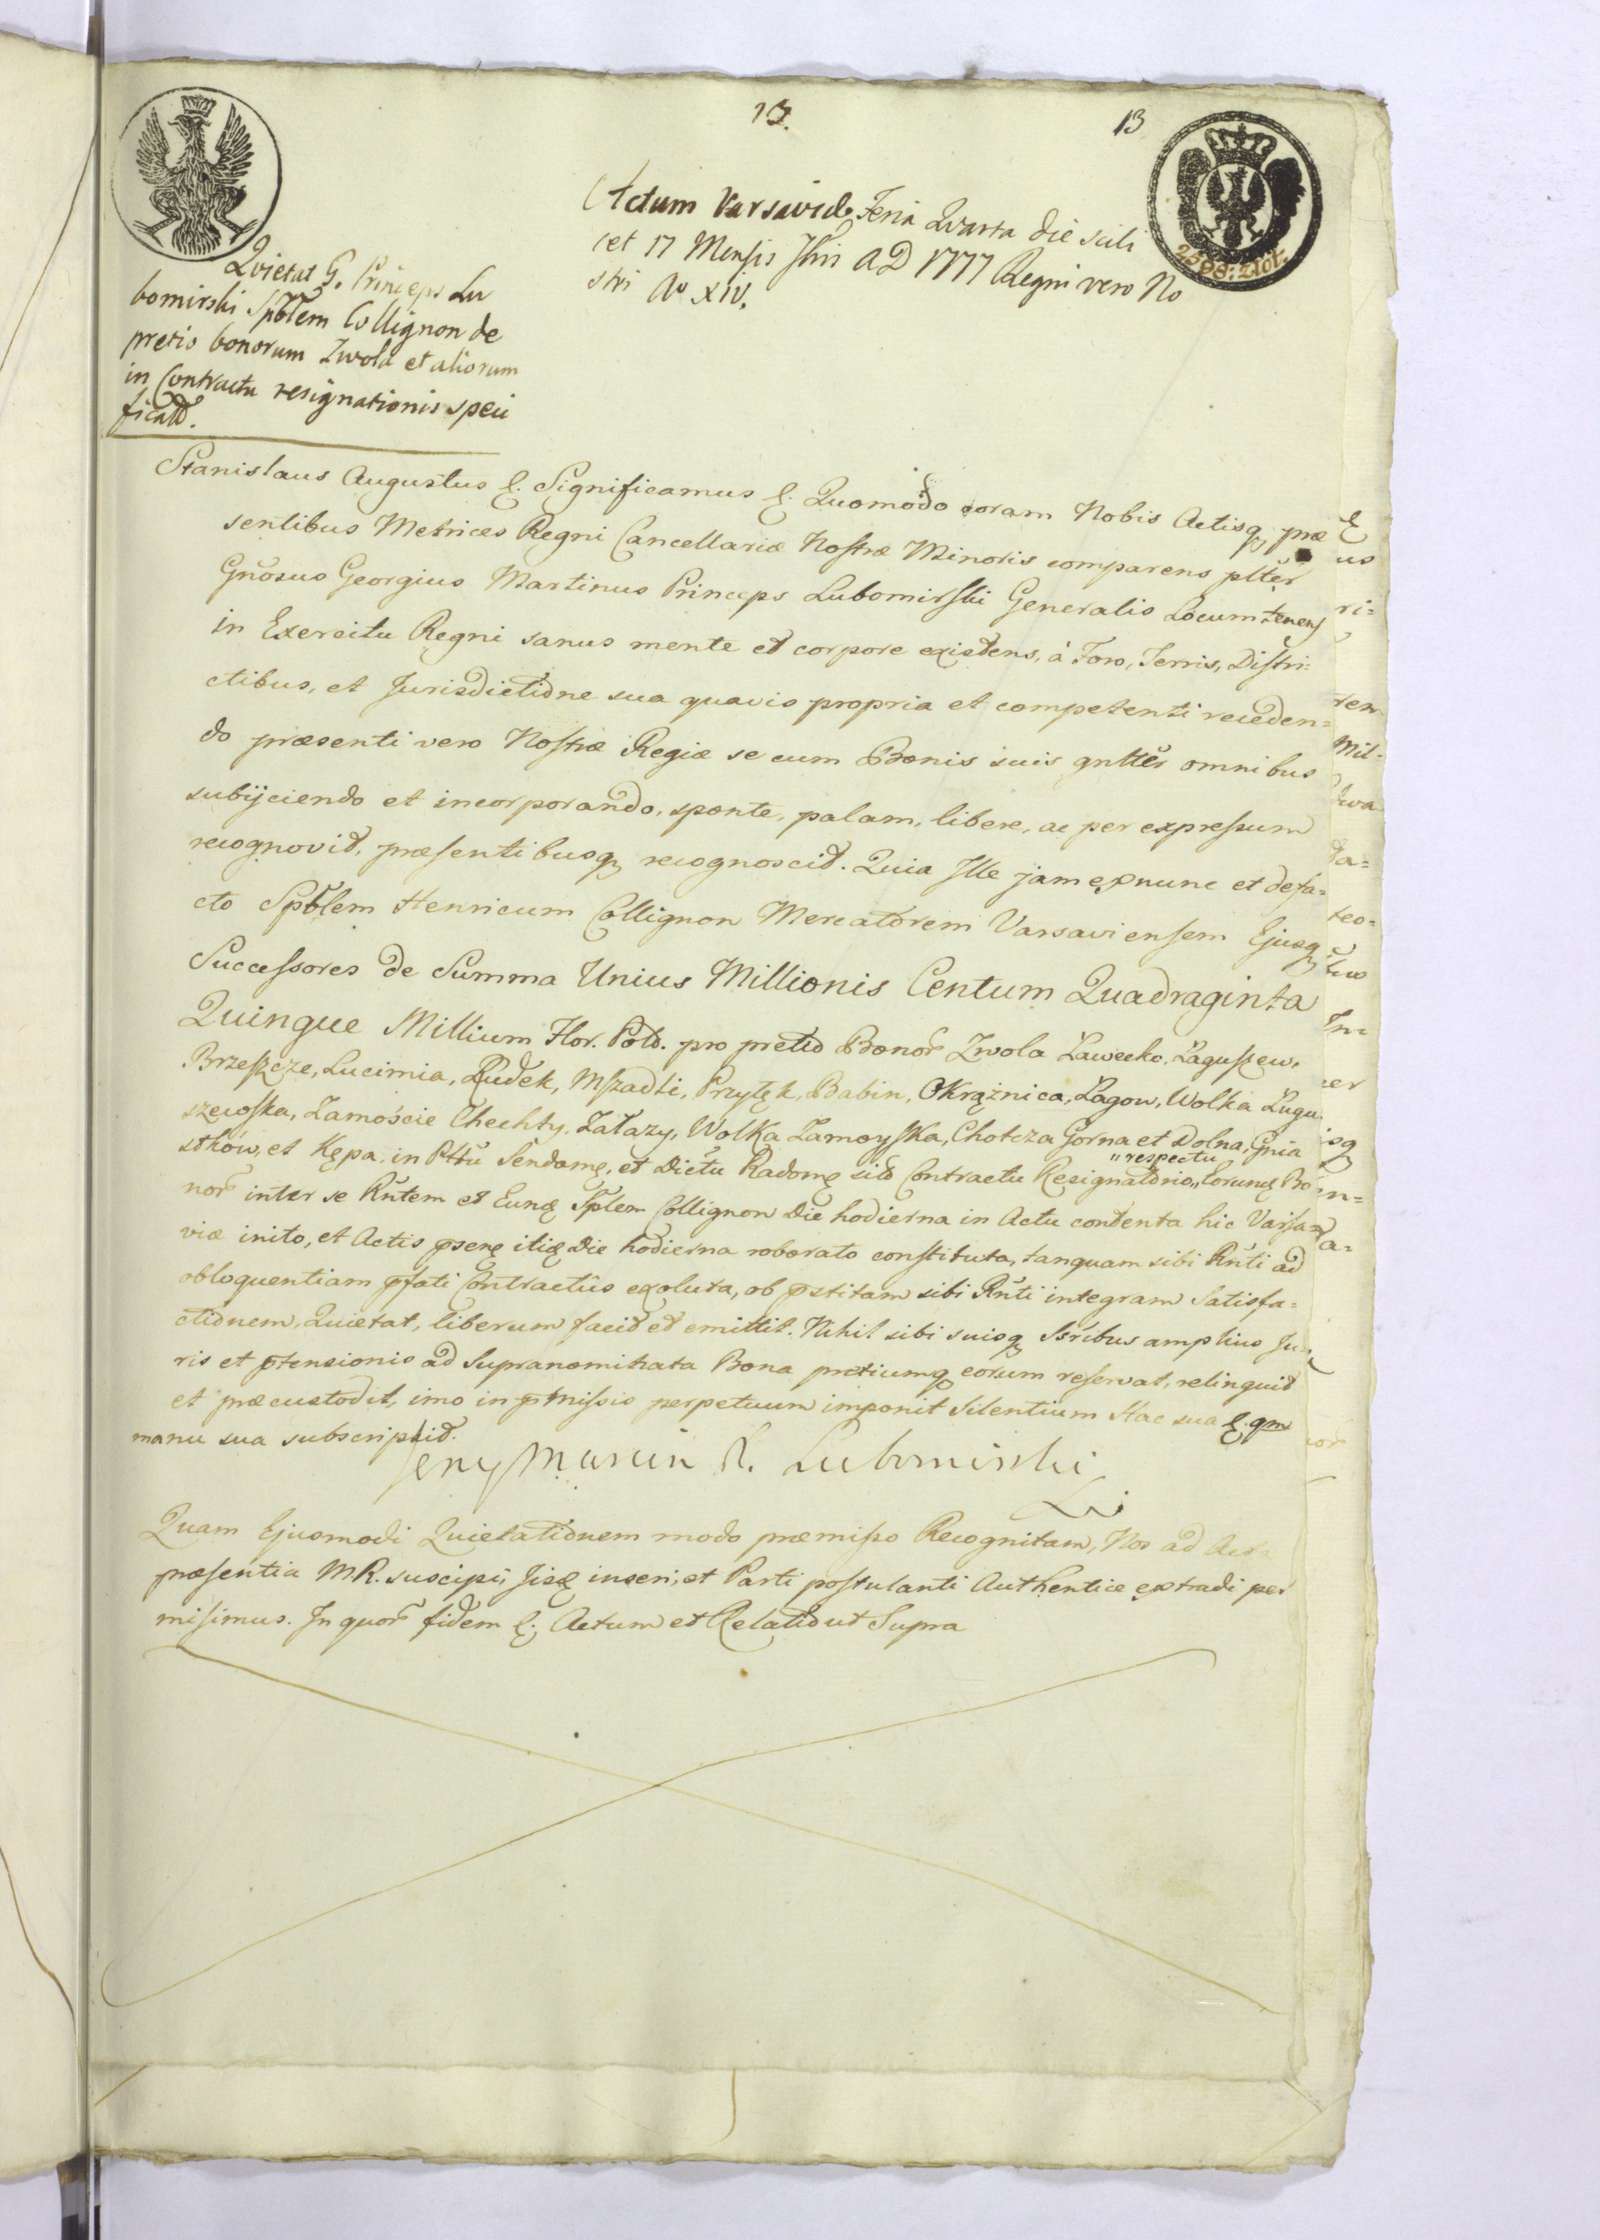 13.
13
2508: złot.
Actum Varsaviæ Feria Quarta die scili
cet 17 Mensis Xbris AD 1777 Regni vero No
stri Aº XIV.
Quietat G. Princeps Lu
bomirski Spblem Collignon de
pretio bonorum Zwola et aliorum
in Contractu resignationis speci
ficatt.
Stanislaus Augustus &. Significamus &. Quomodo coram Nobis Actisq præ
sentibus Metrices Regni Cancellariæ Nostræ Minoris comparens pltĕr
Gnŏsus Georgius Martinus Princeps Lubomirski Generalis Locumtenens
in Exercitu Regni sanus mente et corpore existens, à Foro, Terris, Distri=
ctibus, et Jurisdictione sua quavis propria et competenti receden=
do præsenti vero Nostræ Regiæ se cum Bonis suis gnltĕr omnibus
subijciendo et incorporando, sponte, palam, libere, ac per expressum
recognovit, præsentibusq recognoscit. Quia Ille jam ex nunc et defa=
cto Spblem Henricum Collignon Mercatorem Varsaviensem Ejusq
Successores de Summa Unius Millionis Centum Quadraginta
Quinque Millium Flor. Pold. pro pretio Bonor Zwola Ławecko, Łaguszew,
Brzeszcze, Lucimia, Rudek, Mszadli, Przyłęk, Babin, Okrąźnica, Łagow, Wolka Łagu
szewska, Zamoście Chechły, Załazy, Wolka Zamoyska, Chotcza Gorna et Dolna, Gnia
stków, et Kępa in Pttŭ Sendomę, et Dictu Radomę sitõ Contractu Resignatorio „ respectu „ Eorund Bo
nor inter se Rntem et Eund Spblem Collignon Die hodierna in Actu contenta hic Varsa
viæ inito, et Actis psen itid Die hodierna roborato constituta, tanquam sibi Rnti ad
obloquentiam pfati Contractus exoluta, ob pstitam sibi Rnti integram Satisfa=
ctionem, Quietat, liberum facit et emittit. Nihil sibi suisq Ssribus amplius Ju
ris et ptensionis ad Supranominata Bona pretiumq eorum reservat, relinquit
et præcustodit, imo in pmissis perpetuum imponit Silentium Hac sua &. qm
manu sua subscripsit.
Jerzy Marcin X. Lubomirski
Quam Ejusmodi Quietationem modo præmisso Recognitam, Nos ad Acta
præsentia MR. suscipi, Jisq inseri, et Parti postulanti Authentice extradi per
misimus. In quor fidem &. Actum et Relatio ut Supra